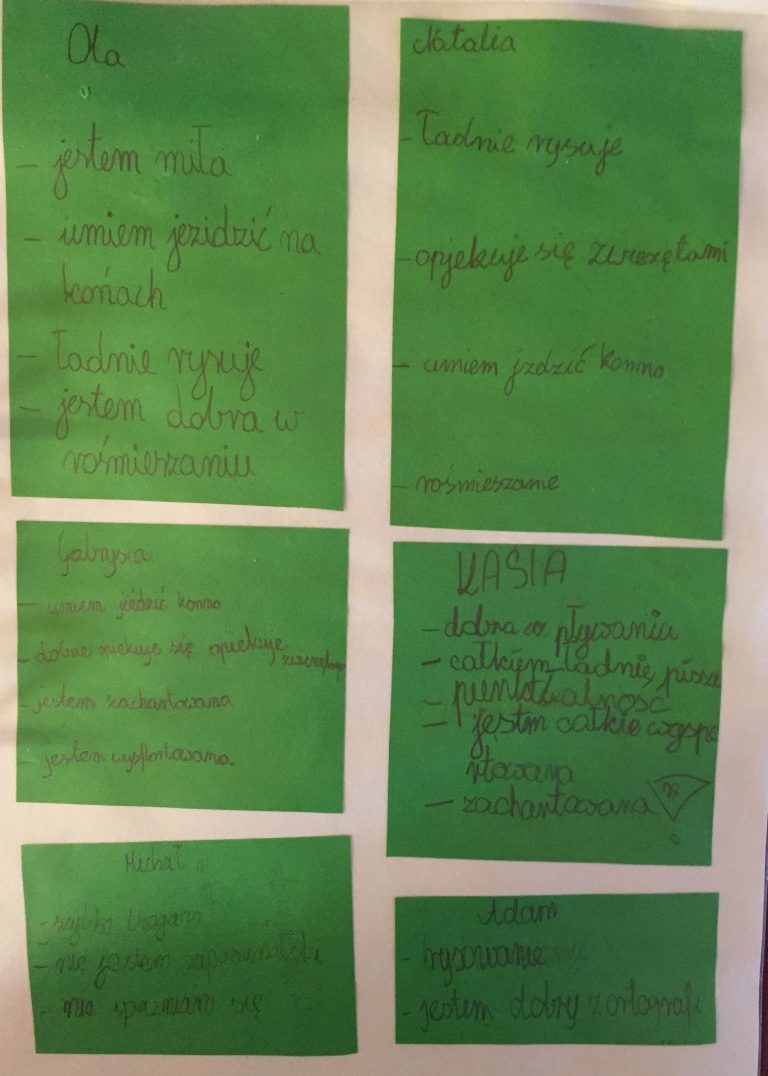 Ola
- jestem miła
- umiem jezidzić na
końach
- Ładnie rysuje
- jestem dobra w
rośmieszaniu
Natalia
- Ładnie rysuje
- opjekuje się zwierzętami
- umiem jździć konno
- rośmieszanie
Gabrysia
- umiem jeździć konno
- dobrze opiekuje się opiekuje
- jestem zachartowana
- jestem wysportowana
KASIA
- dobra w pływaniu
- całkiem ładnię pisze
- punktualność
- jęstm całkie wgspo
rtowana
- zachartowana
Michał
- szybko biegam
- nie jestem zapominalski
- nie spaźniam się
Adam
- rysowanie
- jestem dobry z ortografi